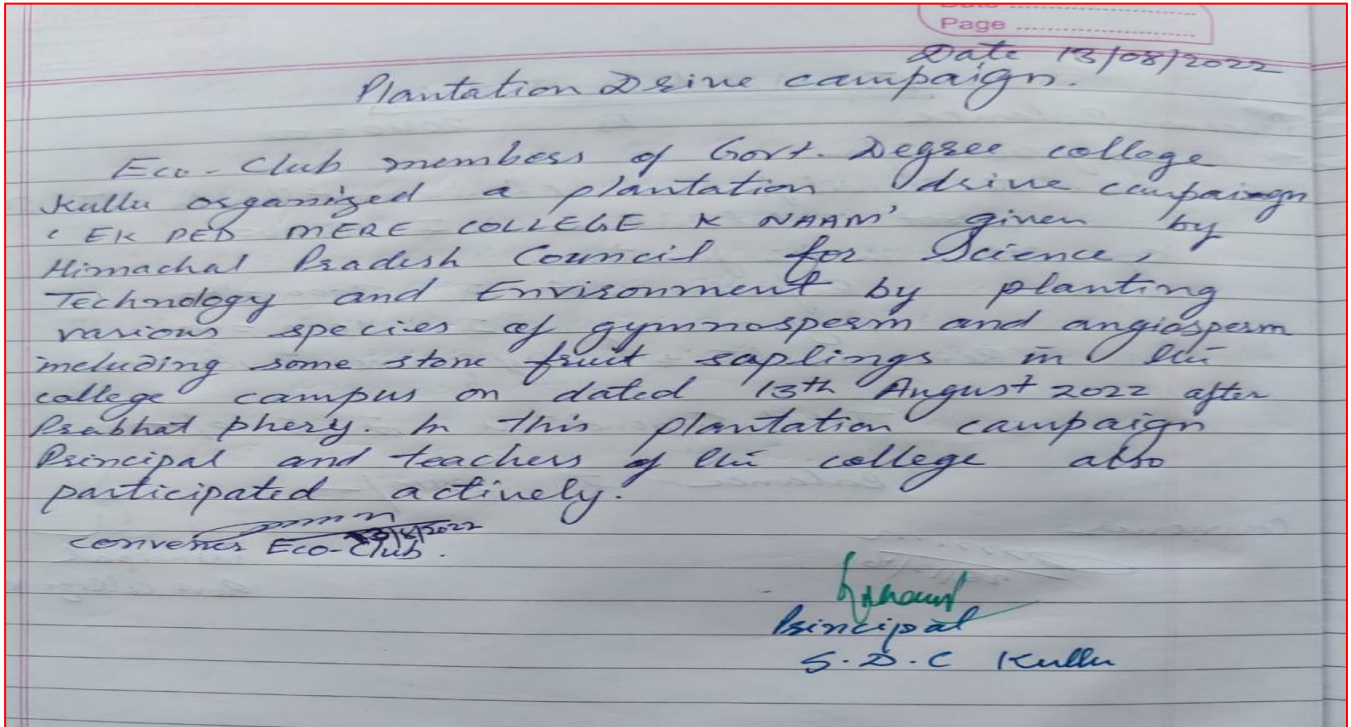 Date
Page
Date 13/08/2022
Plantation Drive campaign.
Eco-Club members of Govt. Degree college
Kullu organized a plantation drive campaign
'EK PED MERE COLLEGE K NAAM' given by
Himachal Pradesh Council for Science,
Technology and Environment by planting
various species of gymnosperm and angiosperm
including some stone fruit saplings in the
college campus on dated 13th August 2022 after
Prabhat phery. In this plantation campaign
Principal and teachers of the college also
participated actively.
13/8/2022
Convener Eco-Club.
Principal
G.D.C Kullu